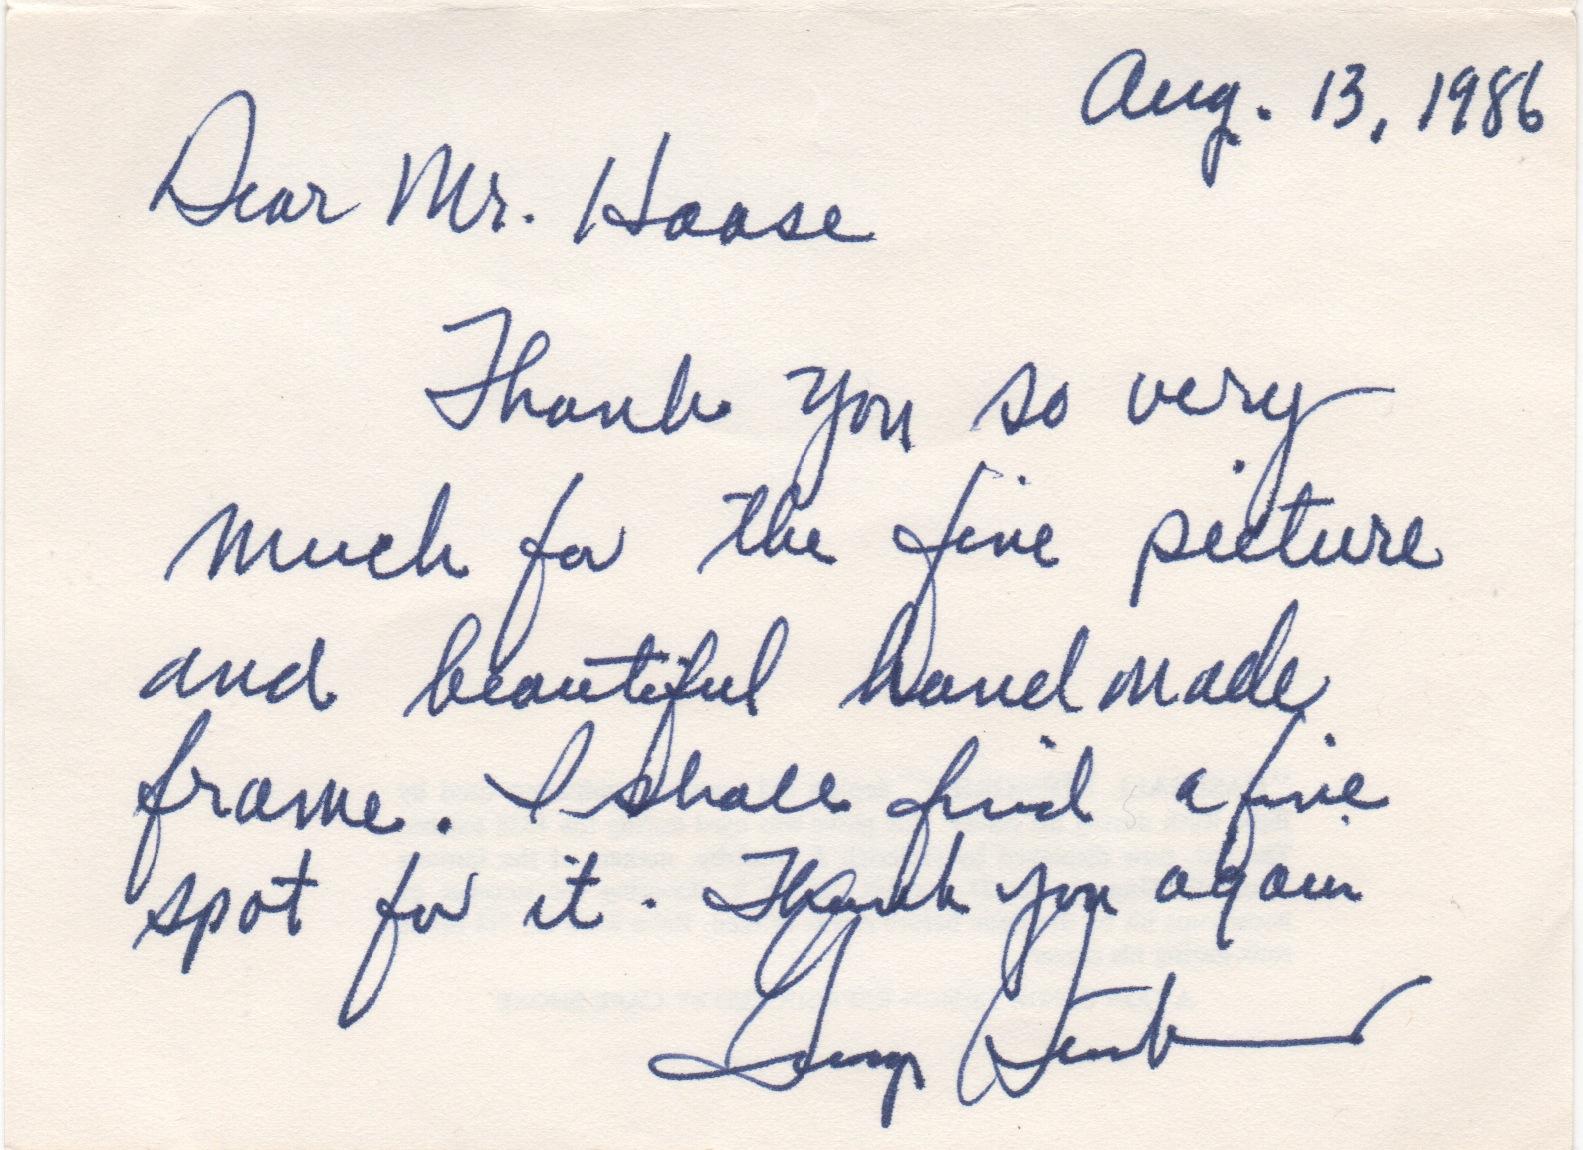 Aug. 13, 1986
Dear Mr. Haase
Thank you so very
much for the fine picture
and beautiful handmade
frame. I shall find a fine
spot for it. Thank you again
George